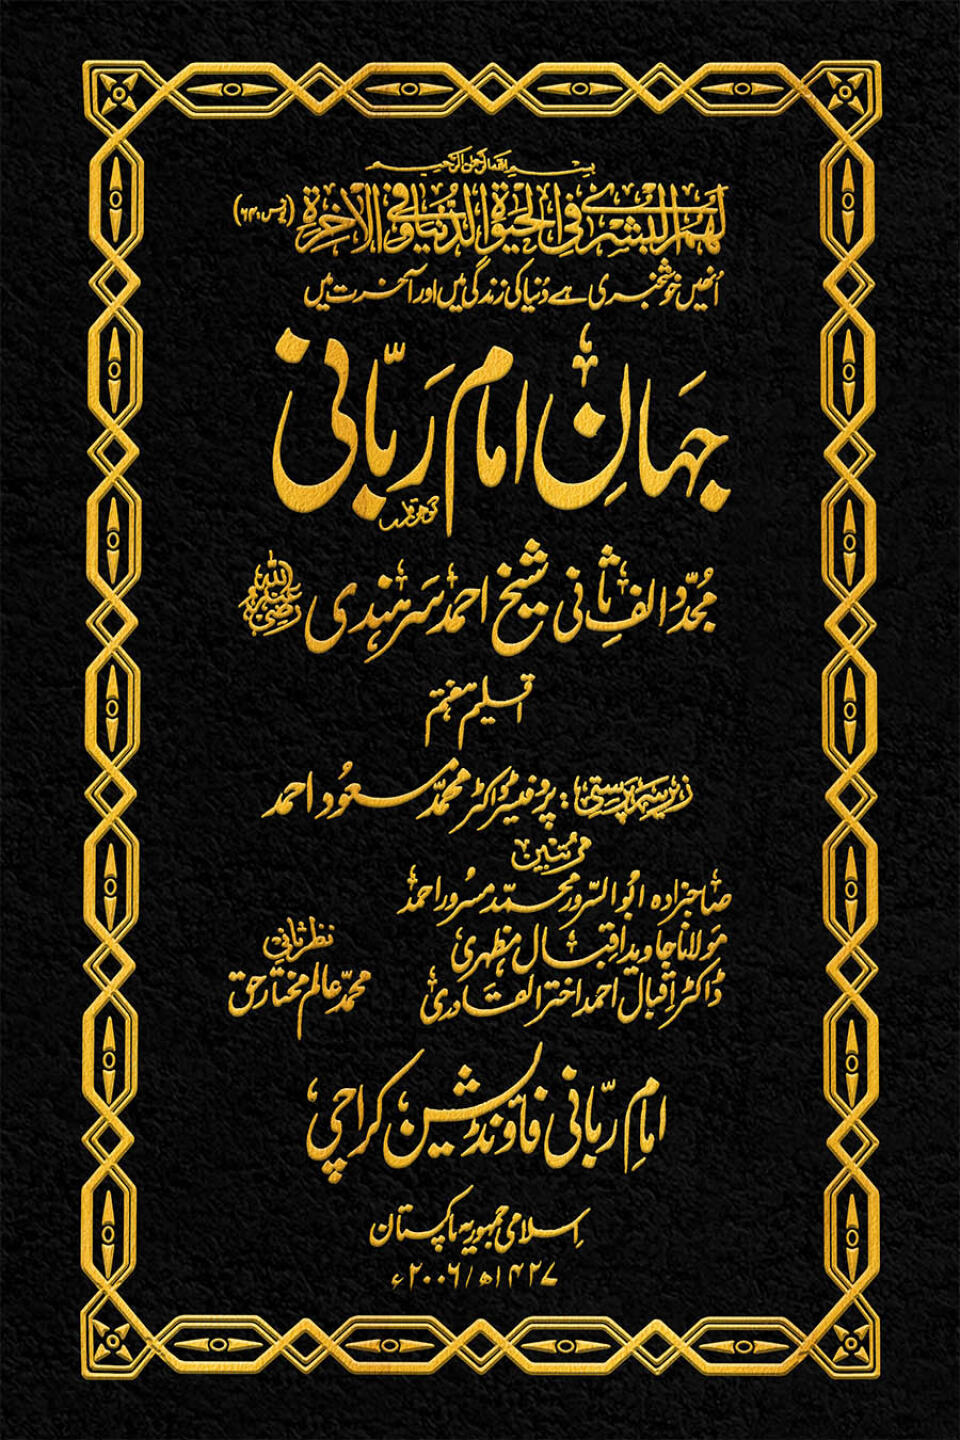 بسم اللہ الرحمن الرحیم
لَهُمُ الْبُشْرٰى فِي الْحَيٰوةِ الدُّنْيَا وَفِي الْاٰخِرَةِ (یونس، ۶۴)
اُنھیں خوشخبری ہے دُنیا کی زندگی میں اور آخرت میں
جہانِ امام رَبّانی
مُجدّد الفِ ثانی شیخ احمد سَرہِندی رضی اللہ عنہ
اقلیم ہفتم
زیر سرپرستی: پروفیسر ڈاکٹر محمّد مسعُود احمد
مرتبین
صاحبزادہ ابُو السّرور محمّد مسرُور احمد
مَولانا جاوید اقبال مظہری
ڈاکٹر اقبال احمد اختر القادری
نظر ثانی
محمّد عالم مختارِ حق
امامِ ربّانی فاؤنڈیشن کراچی
اِسلامی جمہوریہ پاکستان
۱۴۲۷ھ/۲۰۰۶ء